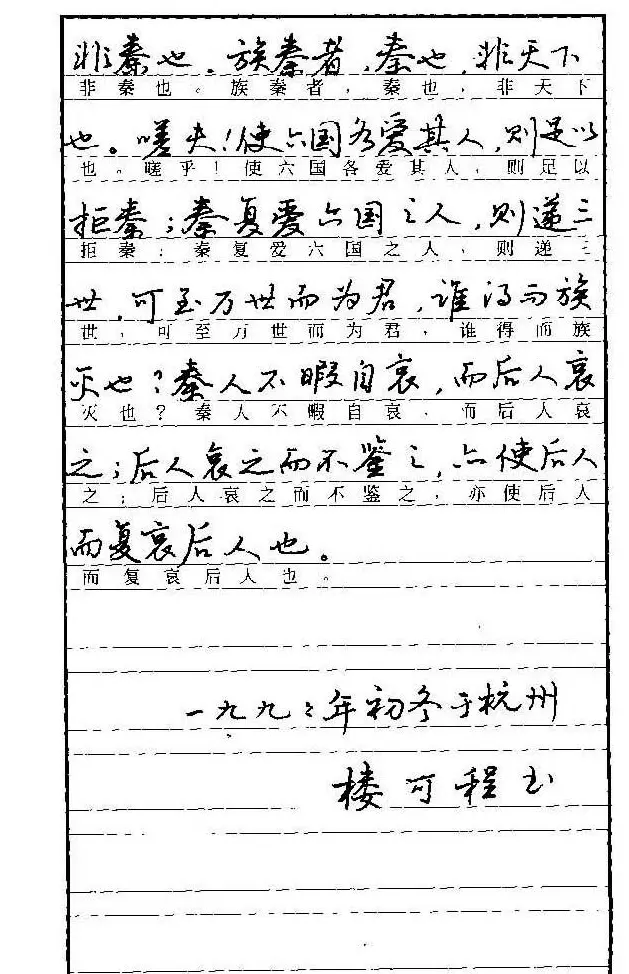 非秦也。族秦者，秦也，非天下
非秦也。族秦者，秦也，非天下
也。嗟夫！使六国各爱其人，则足以
也。嗟乎！使六国各爱其人，则足以
拒秦；秦复爱六国之人，则递三
拒秦；秦复爱六国之人，则递三
世，可至万世而为君，谁得而族
世，可至万世而为君，谁得而族
灭也？秦人不暇自哀，而后人哀
灭也？秦人不暇自哀，而后人哀
之；后人哀之而不鉴之，亦使后人
之；后人哀之而不鉴之，亦使后人
而复哀后人也。
而复哀后人也。
一九九二年初冬于杭州
楼可程书